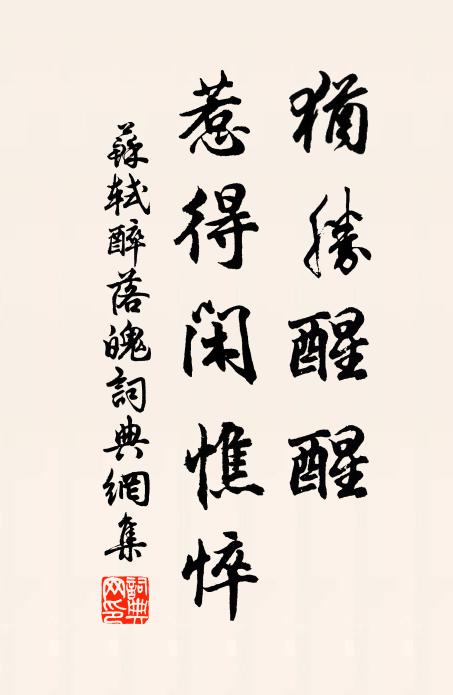 猶勝醒醒
惹得閑憔悴
蘇軾醉落魄詞典網集
詞典網印